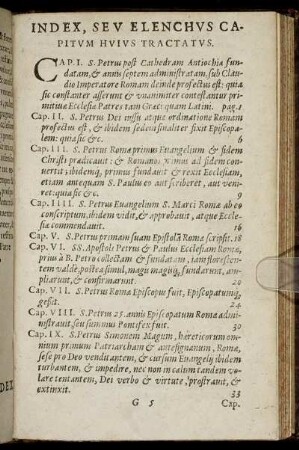 INDEX, SEV ELENCHVS CA-
PITVM HVIVS TRACTATVS.
CAP. I. S. Petrus post Cathedram Antiochiæ fun-
datam, & annis septem administratam, sub Clau-
dio Imperatore Romam deinde profectus est: quia
sic constanter asserunt & vnanimiter contestantur pri-
mitiuæ Ecclesiæ Patres tam Græci quam Latini. pag. 1
Cap. II. S. Petrus Dei iussu atque ordinatione Romam
profectus est, & ibidem sedens finaliter fixit Episcopa-
lem: quia sic &c. 6
Cap. III. S. Petrus Romæ primus Euangelium & fidem
Christi prædicauit: & Romanos primus ad fidem con-
uertit; ibidemq; primus fundauit & rexit Ecclesiam,
etiam antequam S. Paulus eo aut scriberet, aut veni-
ret: quia sic &c. 9
Cap. IIII. S. Petrus Euangelium S. Marci Romæ ab eo
conscriptum, ibidem vidit, & approbauit, atque Eccle-
siæ commendauit. 16
Cap. V. S. Petrus primam suam Epistolã Romæ scripsit. 18
Cap. VI. SS. Apostoli Petrus & Paulus Ecclesiam Romæ,
prius à B. Petro collectam & fundatam, iam flores cen-
tem validè, postea simul, magis magisq; fundarunt, am-
pliarunt, & confirmarunt. 20
Cap. VII. S. Petrus Romæ Episcopus fuit, Episcopatumq;
gessit. 24
Cap. VIII. S. Petrus 25. annis Episcopatum Romæ admi-
nistrauit seu summus Pontifex fuit. 30
Cap. IX. S. Petrus Simonem Magum, hæreticorum om-
nium primum Patriarcham & antesignanum, Romæ,
sese pro Deo venditantem, & cursum Euangelij ibidem
turbantem, & impedire, nec non in cælum tandem vo-
lare tentantem, Dei verbo & virtute prostrauit, &
extinxit. 33
G 5 Cap.
DEX,